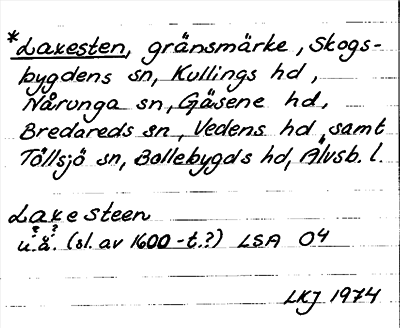 *Laxesten, gränsmärke, Skogs-
bygdens sn, Kullings hd,
Nårunga sn, Gäsene hd,
Bredareds sn, Vedens hd, samt
Töllsjö sn, Bollebygds hd, Älvsb. l.
Laxe steen
u. å. (sl. av 1600-t.?) LSA O4
LKJ 1974